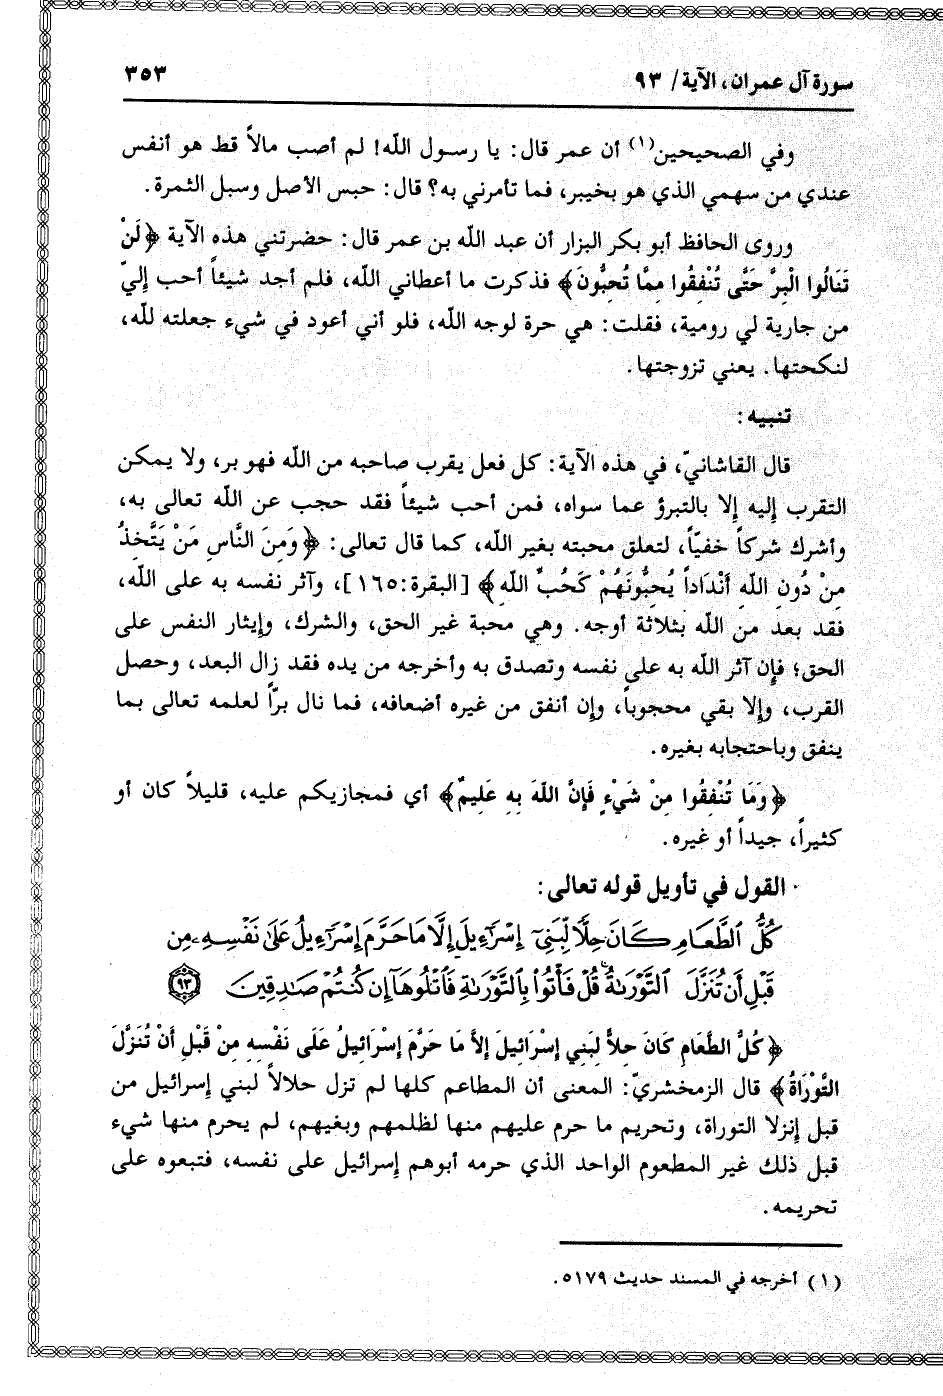 سورة آل عمران، الآية/ ٩٣
٣٥٣
وفي الصحيحين(١) أن عمر قال: يا رسول الله! لم أصب مالاً قط هو أنفس
عندي من سهمي الذي هو بخيبر، فما تأمرني به؟ قال: حبس الأصل وسبل الثمرة.
وروى الحافظ أبو بكر البزار أن عبد الله بن عمر قال: حضرتني هذه الآية ﴿لَنْ
تَنَالُوا الْبِرَّ حَتَّى تُنْفِقُوا مِمَّا تُحِبُّونَ﴾ فذكرت ما أعطاني الله، فلم أجد شيئاً أحب إليّ
من جارية لي رومية، فقلت: هي حرة لوجه الله، فلو أني أعود في شيء جعلته لله،
لنكحتها. يعني تزوجتها.
تنبيه:
قال القاشانيّ، في هذه الآية: كل فعل يقرب صاحبه من الله فهو بر، ولا يمكن
التقرب إليه إلا بالتبرؤ عما سواه، فمن أحب شيئاً فقد حجب عن الله تعالى به،
وأشرك شركاً خفيّاً، لتعلق محبته بغير الله، كما قال تعالى: ﴿وَمِنَ النَّاسِ مَنْ يَتَّخِذُ
مِنْ دُونِ اللهِ أَنْدَاداً يُحِبُّونَهُمْ كَحُبِّ اللهِ﴾ [البقرة:١٦٥]، وآثر نفسه به على الله،
فقد بعد من الله بثلاثة أوجه. وهي محبة غير الحق، والشرك، وإيثار النفس على
الحق؛ فإن آثر الله به على نفسه وتصدق به وأخرجه من يده فقد زال البعد، وحصل
القرب، وإلا بقي محجوباً، وإن أنفق من غيره أضعافه، فما نال برّاً لعلمه تعالى بما
ينفق وباحتجابه بغيره.
﴿وَمَا تُنْفِقُوا مِنْ شَيْءٍ فَإِنَّ اللهَ بِهِ عَلِيمٌ﴾ أي فمجازيكم عليه، قليلاً كان أو
كثيراً، جيداً أو غيره.
القول في تأويل قوله تعالى:
كُلُّ ٱلطَّعَامِ كَانَ حِلًّا لِّبَنِىٓ إِسْرَٰٓءِيلَ إِلَّا مَا حَرَّمَ إِسْرَٰٓءِيلُ عَلَىٰ نَفْسِهِۦ مِن
قَبْلِ أَن تُنَزَّلَ ٱلتَّوْرَىٰةُ ۗ قُلْ فَأْتُوا۟ بِٱلتَّوْرَىٰةِ فَٱتْلُوهَآ إِن كُنتُمْ صَـٰدِقِينَ ٩٣
﴿كُلُّ الطَّعَامِ كَانَ حِلاًّ لِبَنِي إِسْرَائِيلَ إِلاَّ مَا حَرَّمَ إِسْرَائِيلُ عَلَى نَفْسِهِ مِنْ قَبْلِ أَنْ تُنَزَّلَ
التَّوْرَاةُ﴾ قال الزمخشريّ: المعنى أن المطاعم كلها لم تزل حلالاً لبني إسرائيل من
قبل إنزلا التوراة، وتحريم ما حرم عليهم منها لظلمهم وبغيهم، لم يحرم منها شيء
قبل ذلك غير المطعوم الواحد الذي حرمه أبوهم إسرائيل على نفسه، فتبعوه على
تحريمه.
(١) أخرجه في المسند حديث ٥١٧٩.